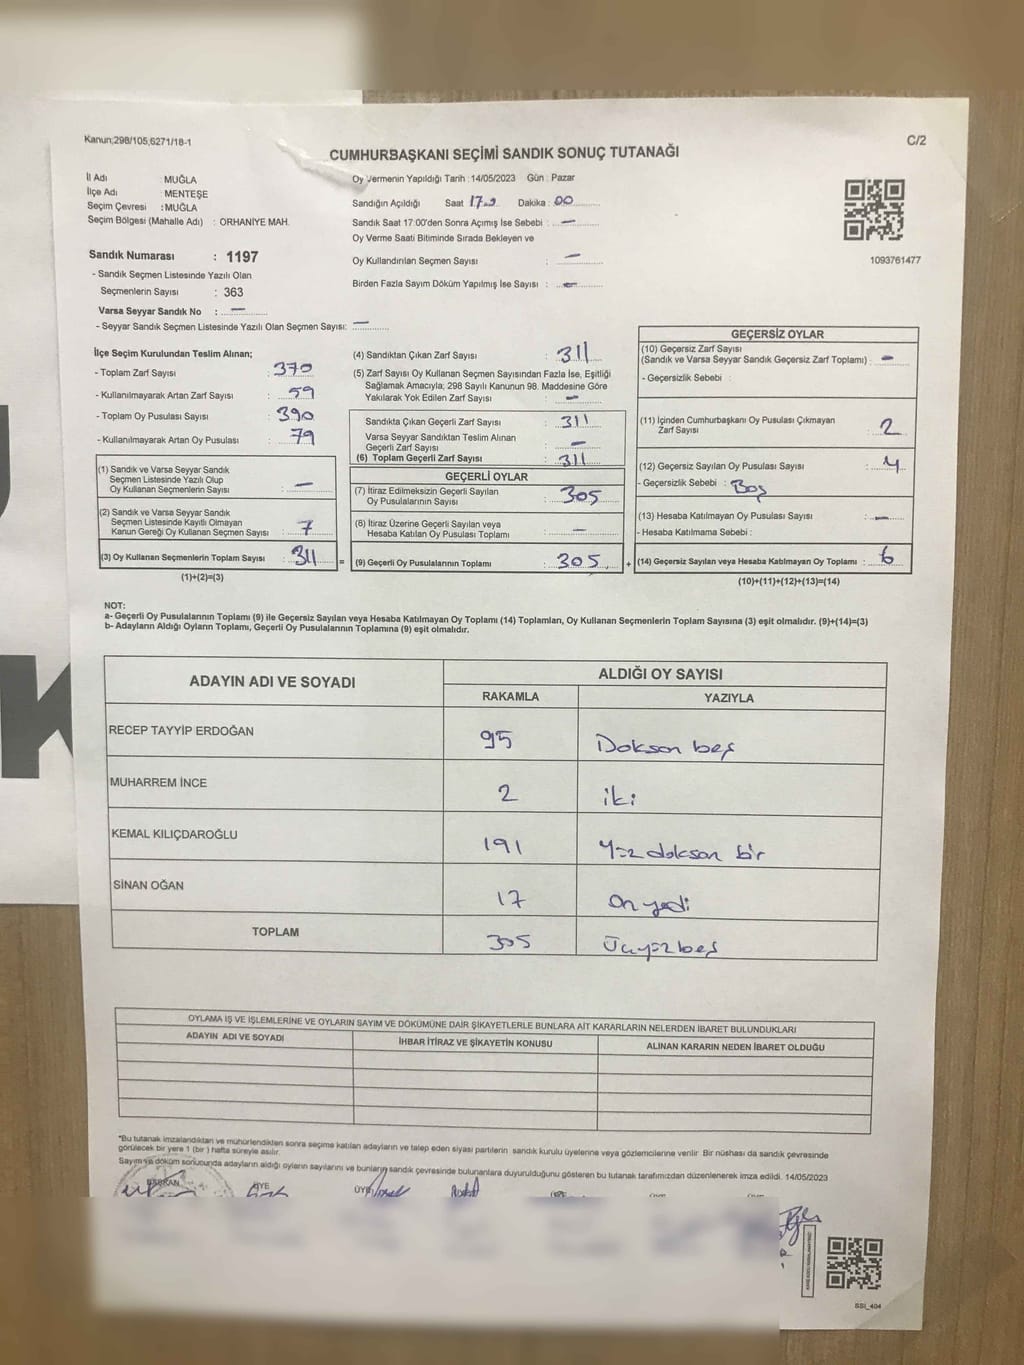 Kanun;298/105,6271/18-1
C/2
CUMHURBAŞKANI SEÇİMİ SANDIK SONUÇ TUTANAĞI
İl Adı : MUĞLA
İlçe Adı : MENTEŞE
Seçim Çevresi : MUĞLA
Seçim Bölgesi (Mahalle Adı) : ORHANİYE MAH.
Oy Vermenin Yapıldığı Tarih : 14/05/2023 Gün : Pazar
Sandığın Açıldığı Saat 17.0 Dakika : 00
Sandık Saat 17:00'den Sonra Açımış İse Sebebi : —
Oy Verme Saati Bitiminde Sırada Bekleyen ve
Oy Kullandırılan Seçmen Sayısı : —
Birden Fazla Sayım Döküm Yapılmış İse Sayısı : —
1093761477
Sandık Numarası : 1197
- Sandık Seçmen Listesinde Yazılı Olan
Seçmenlerin Sayısı : 363
Varsa Seyyar Sandık No : —
- Seyyar Sandık Seçmen Listesinde Yazılı Olan Seçmen Sayısı: —
İlçe Seçim Kurulundan Teslim Alınan;
- Toplam Zarf Sayısı : 370
- Kullanılmayarak Artan Zarf Sayısı : 59
- Toplam Oy Pusulası Sayısı : 390
- Kullanılmayarak Artan Oy Pusulası : 79
(1) Sandık ve Varsa Seyyar Sandık
Seçmen Listesinde Yazılı Olup
Oy Kullanan Seçmenlerin Sayısı : —
(2) Sandık ve Varsa Seyyar Sandık
Seçmen Listesinde Kayıtlı Olmayan
Kanun Gereği Oy Kullanan Seçmen Sayısı : 7
(3) Oy Kullanan Seçmenlerin Toplam Sayısı : 311 =
(1)+(2)=(3)
(4) Sandıktan Çıkan Zarf Sayısı : 311
(5) Zarf Sayısı Oy Kullanan Seçmen Sayısından Fazla İse, Eşitliği
Sağlamak Amacıyla; 298 Sayılı Kanunun 98. Maddesine Göre
Yakılarak Yok Edilen Zarf Sayısı : —
Sandıkta Çıkan Geçerli Zarf Sayısı : 311
Varsa Seyyar Sandıktan Teslim Alınan
Geçerli Zarf Sayısı : —
(6) Toplam Geçerli Zarf Sayısı : 311
GEÇERLİ OYLAR
(7) İtiraz Edilmeksizin Geçerli Sayılan
Oy Pusulalarının Sayısı : 305
(8) İtiraz Üzerine Geçerli Sayılan veya
Hesaba Katılan Oy Pusulası Toplamı : —
(9) Geçerli Oy Pusulalarının Toplamı : 305 +
GEÇERSİZ OYLAR
(10) Geçersiz Zarf Sayısı
(Sandık ve Varsa Seyyar Sandık Geçersiz Zarf Toplamı) : —
- Geçersizlik Sebebi :
(11) İçinden Cumhurbaşkanı Oy Pusulası Çıkmayan
Zarf Sayısı : 2
(12) Geçersiz Sayılan Oy Pusulası Sayısı : 4
- Geçersizlik Sebebi : Boş
(13) Hesaba Katılmayan Oy Pusulası Sayısı : —
- Hesaba Katılmama Sebebi :
(14) Geçersiz Sayılan veya Hesaba Katılmayan Oy Toplamı : 6
(10)+(11)+(12)+(13)=(14)
NOT:
a- Geçerli Oy Pusulalarının Toplamı (9) ile Geçersiz Sayılan veya Hesaba Katılmayan Oy Toplamı (14) Toplamları, Oy Kullanan Seçmenlerin Toplam Sayısına (3) eşit olmalıdır. (9)+(14)=(3)
b- Adayların Aldığı Oyların Toplamı, Geçerli Oy Pusulalarının Toplamına (9) eşit olmalıdır.
ADAYIN ADI VE SOYADI
ALDIĞI OY SAYISI
RAKAMLA YAZIYLA
RECEP TAYYİP ERDOĞAN 95 Doksan beş
MUHARREM İNCE 2 iki
KEMAL KILIÇDAROĞLU 191 Yüz doksan bir
SİNAN OĞAN 17 On yedi
TOPLAM 305 Üçyüz beş
OYLAMA İŞ VE İŞLEMLERİNE VE OYLARIN SAYIM VE DÖKÜMÜNE DAİR ŞİKAYETLERLE BUNLARA AİT KARARLARIN NELERDEN İBARET BULUNDUKLARI
ADAYIN ADI VE SOYADI İHBAR İTİRAZ VE ŞİKAYETİN KONUSU ALINAN KARARIN NEDEN İBARET OLDUĞU
"Bu tutanak imzalandıktan ve mühürlendikten sonra seçime katılan adayların ve talep eden siyasi partilerin sandık kurulu üyelerine veya gözlemcilerine verilir. Bir nüshası da sandık çevresinde
görülecek bir yere 1 (bir) hafta süreyle asılır.
Sayım ve döküm sonucunda adayların aldığı oyların sayılarını ve bunların sandık çevresinde bulunanlara duyurulduğunu gösteren bu tutanak tarafımızdan düzenlenerek imza edildi. 14/05/2023
BAŞKAN ÜYE ÜYE
SSI_404